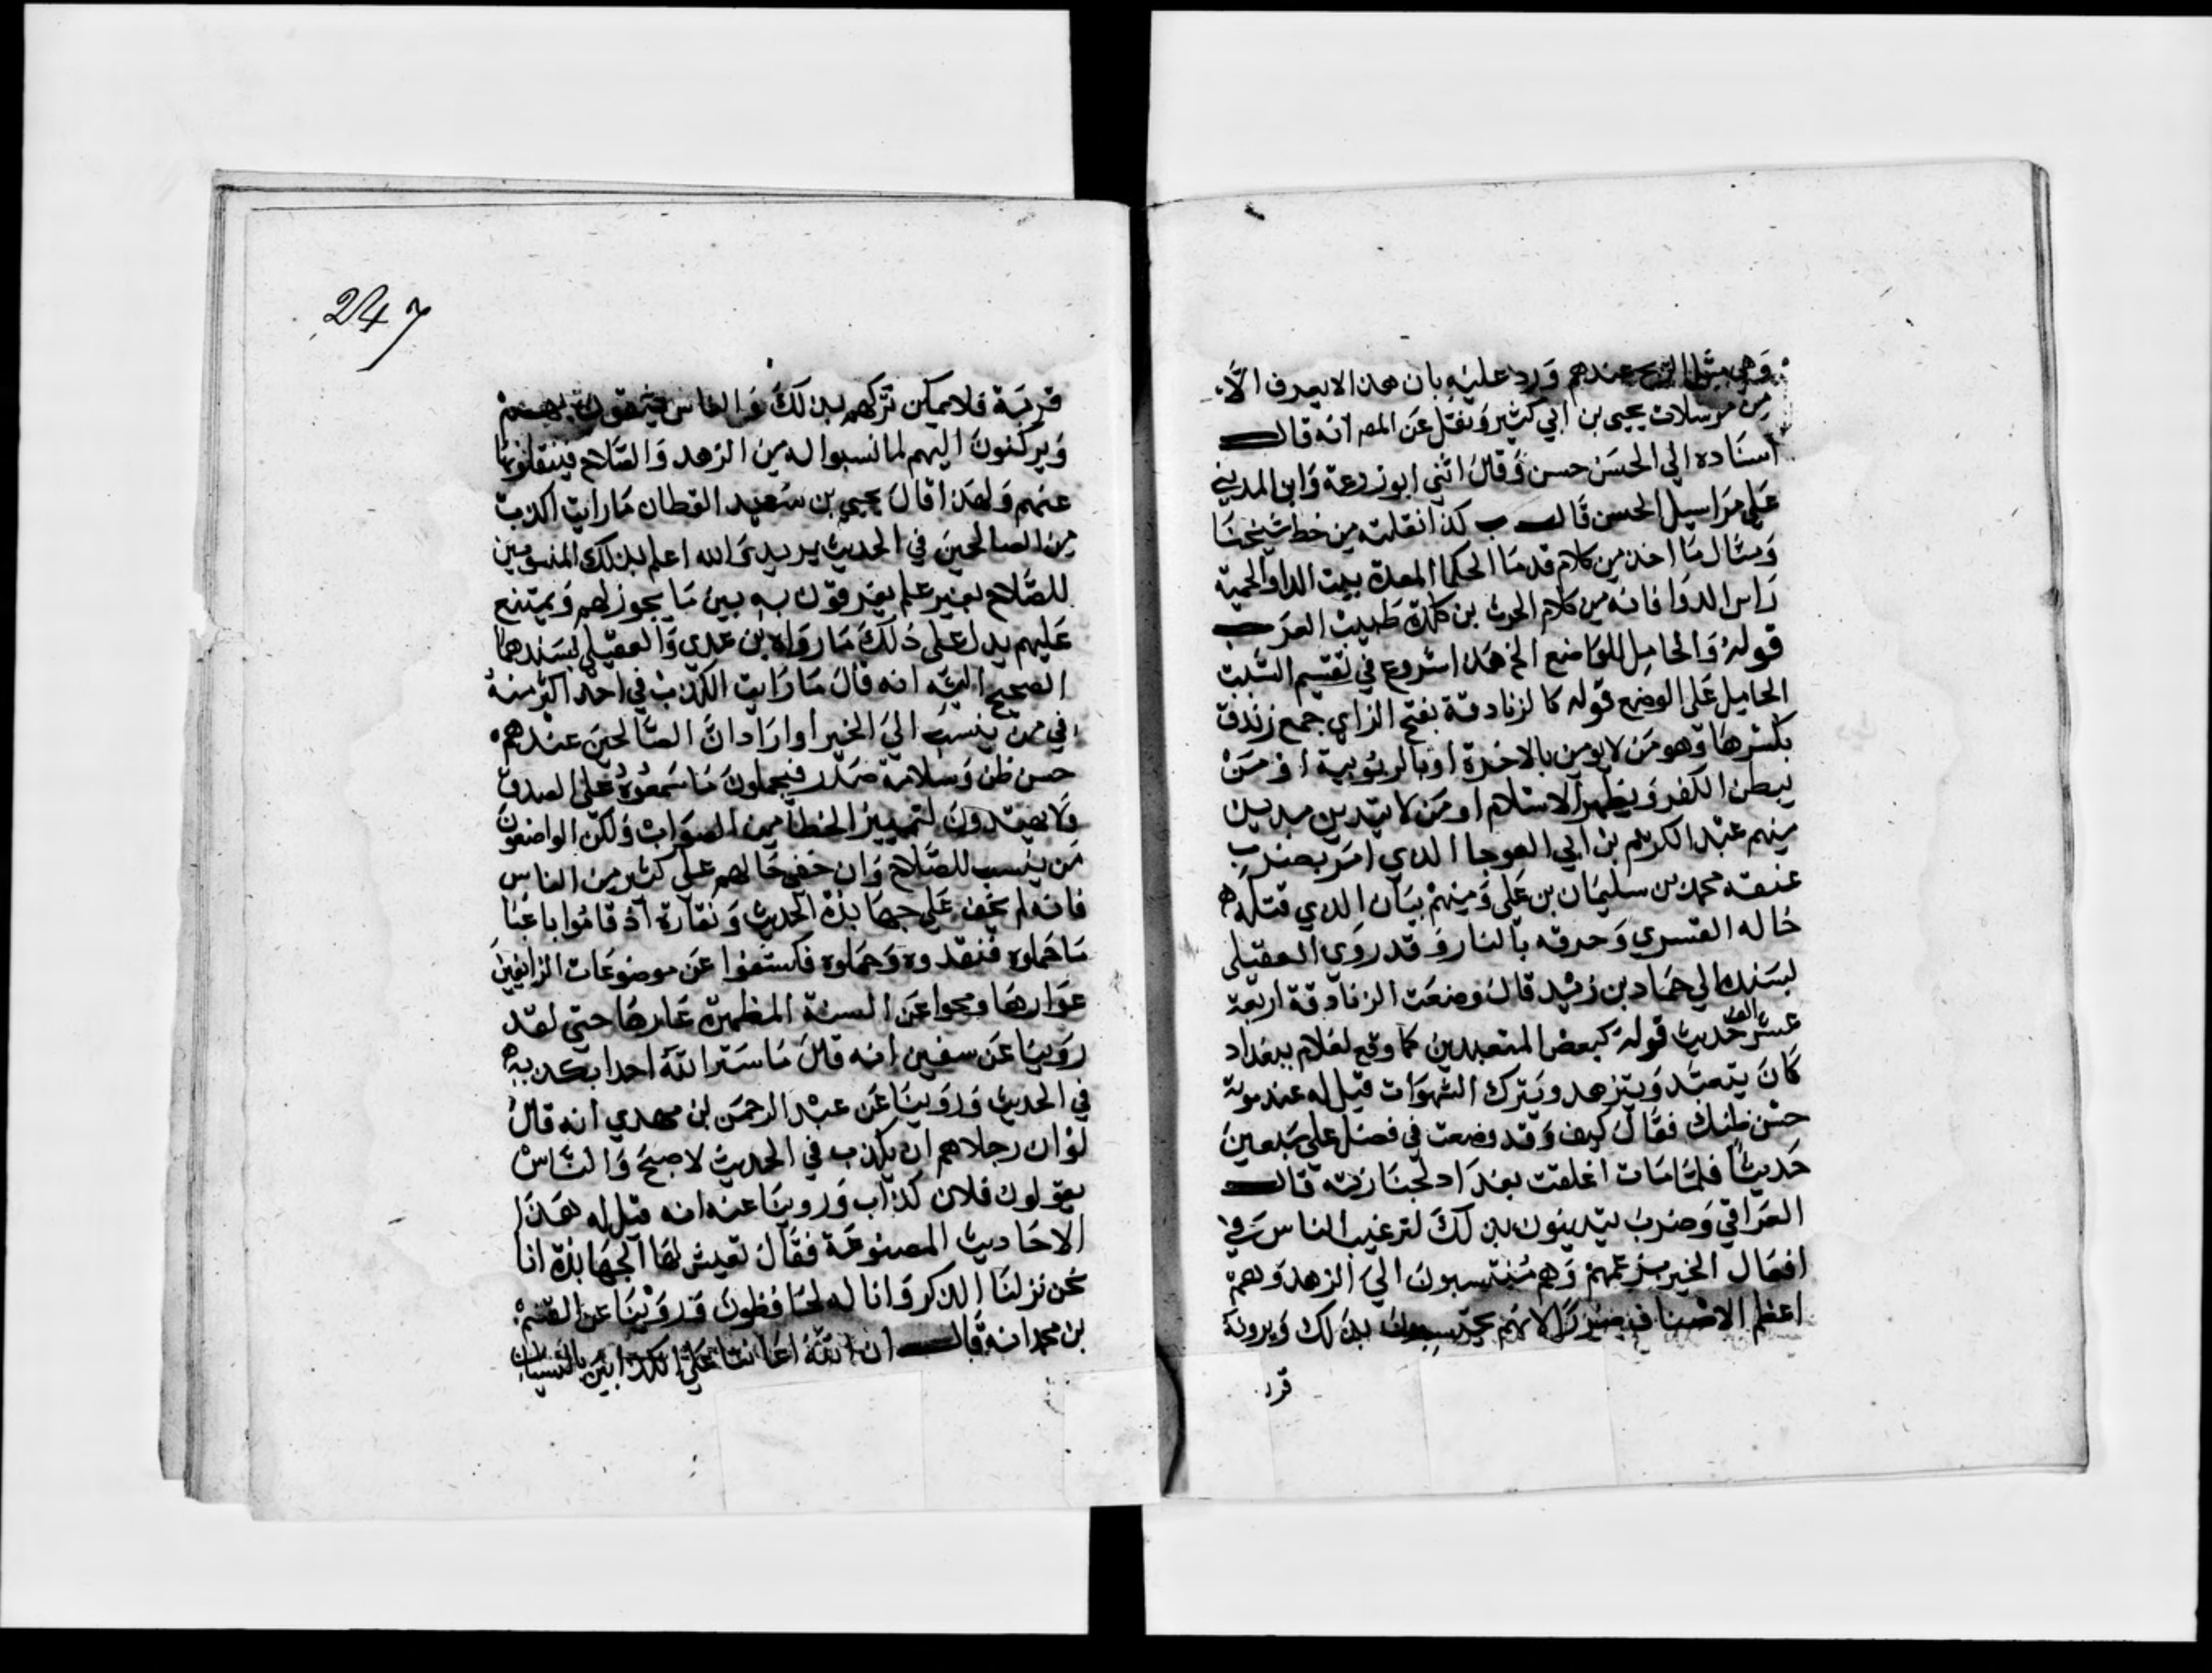 وهي مثل الريح عندهم ورد عليه بان هذا لا يعرف الا
من مرسلات يحيى بن ابي كثير ونقل عن المص انه قال
اسناده الى الحسن حسن وقال اثنى ابو زرعة وابن المديني
على مراسيل الحسن قال ب كذا نقلته من خط شيخنا
ومثال ما اخذ من كلام قدما الحكما المعدة بيت الدا والحمية
راس الدوا فانه من كلام الحرث بن كلدة طبيب العرب
قوله والحامل للواضع الخ هذا شروع في تقسيم السبب
الحامل على الوضع قوله كالزنادقة بفتح الزاي جمع زندق
بكسرها وهو من لا يومن بالاخرة او بالربوبية او من
يبطن الكفر ويظهر الاسلام او من لا يتدين بدين
منهم عبد الكريم بن ابي العوجا الذي امر بضرب
عنقه محمد بن سليمان بن على ومنهم بيان الذي قتله
خالد القسري وحرقه بالنار وقد روى العقيلى
بسنده الي حماد بن زيد قال وضعت الزنادقة اربعة
عشر الف حديث قوله كبعض المتعبدين كما وقع لغلام ببغداد
كان يتعبد ويتزهد ويترك الشهوات قيل له عند موته
حسن ظنك فقال كيف وقد وضعت في فضل علي سبعين
حديثا فلما مات اغلقت بغداد لجنازته قال
العراقي وضرب يتدينون بذلك لترغيب الناس في
افعال الخير بزعمهم وهم منتسبون الى الزهد وهم
اعظم الاصناف ضررا لانهم يحتسبون بذلك ويرونه
قر
247
قربة فلا يمكن تركهم بذلك والناس يثقون بهم
ويركنون اليهم لما نسبوا له من الزهد والصلاح فينقلونها
عنهم ولهذا قال يحيى بن سعيد القطان ما رايت اكذب
من الصالحين في الحديث يريد والله اعلم بذلك المنسوبين
للصلاح بغير علم يفرقون به بين ما يجوز لهم ويمتنع
عليهم يدل على ذلك ما رواه بن عدي والعقيلي بسندهما
الصحيح اليه انه قال ما رايت الكذب في احد اكثر منه
في من ينسب الى الخير او اراد ان الصالحين عندهم
حسن ظن وسلامة صدر فيحملون ما سمعوه على الصدق
ولا يهتدون لتمييز الخطا من الصواب ولكن الواضعون
من ينسب للصلاح وان خفى حالهم على كثير من الناس
فانه لم يخف على جهابذة الحديث ونقاده اذ قاموا باعبا
ما حملوه فنقدوه وحملوه فكشفوا عن موضوعات الزايفين
عوارها ومحوا عن السنة المطهرة عارها حتى لقد
روينا عن سفين انه قال ما ستر الله احدا بكذبه
في الحديث وروينا عن عبد الرحمن بن مهدي انه قال
لو ان رجلا هم ان يكذب في الحديث لاصبح والناس
يقولون فلان كذاب وروينا عنه انه قيل له هذا
الاحاديث المصنوعة فقال تعيش لها الجهابذة انا
نحن نزلنا الذكر وانا له لحافظون وروينا عن القسم
بن محمد انه قال ان الله اعاننا على الكذابين بالنسيان